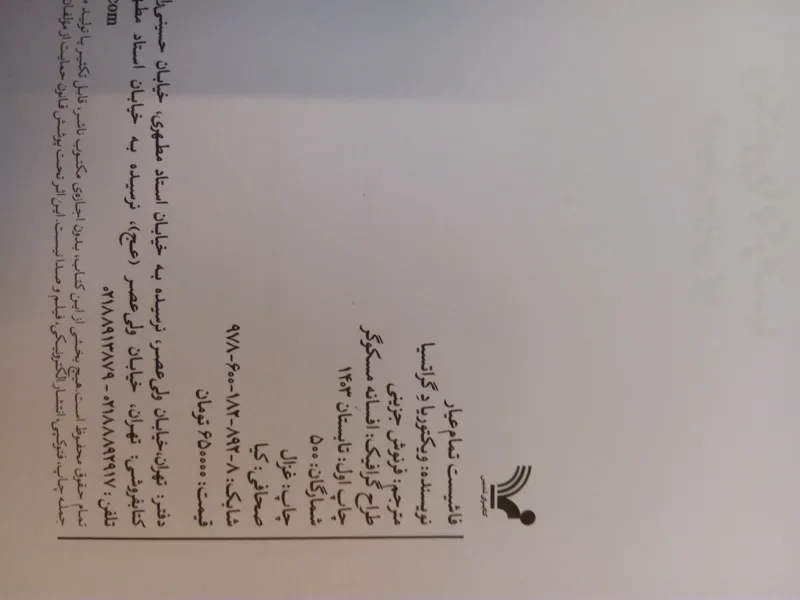 فاشیست تمام‌عیار
نویسنده: ویکتوریا دِ گراتسیا
مترجم: فرنوش جزینی
طراح گرافیک: افسانه مسکوگر
چاپ اول: تابستان ۱۴۰۳
شمارگان: ۵۰۰
چاپ: غزال
صحافی: کیا
شابک: ۸-۸۹۲-۱۸۲-۶۰۰-۹۷۸
قیمت: ۶۵۰۰۰۰ تومان
دفتر: تهران،خیابان ولی‌عصر، نرسیده به خیابان استاد مطهری، خیابان حسینی‌را
کتابفروشی: تهران، خیابان ولی‌عصر (عج)، نرسیده به خیابان استاد مطه
تلفن: ۰۲۱۸۸۸۹۲۹۱۷ - ۰۲۱۸۸۹۱۳۸۷۹
com
تمام حقوق محفوظ است. هیچ بخشی از این کتاب، بدون اجازه‌ی مکتوب ناشر، قابل تکثیر یا تولید
جمله چاپ، فتوکپی، انتشار الکترونیکی، فیلم و صدا نیست. این اثر تحت پوشش قانون حمایت از مؤلفان